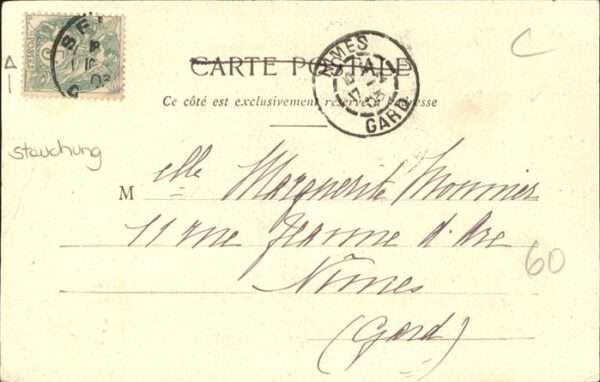 C
CARTE POSTALE
Ce côté est exclusivement réservé à l'adresse
NIMES
GARD
stauchung
Melle Marguerite Mounier
11 rue Jeanne d'Arc
Nîmes
(Gard)
60